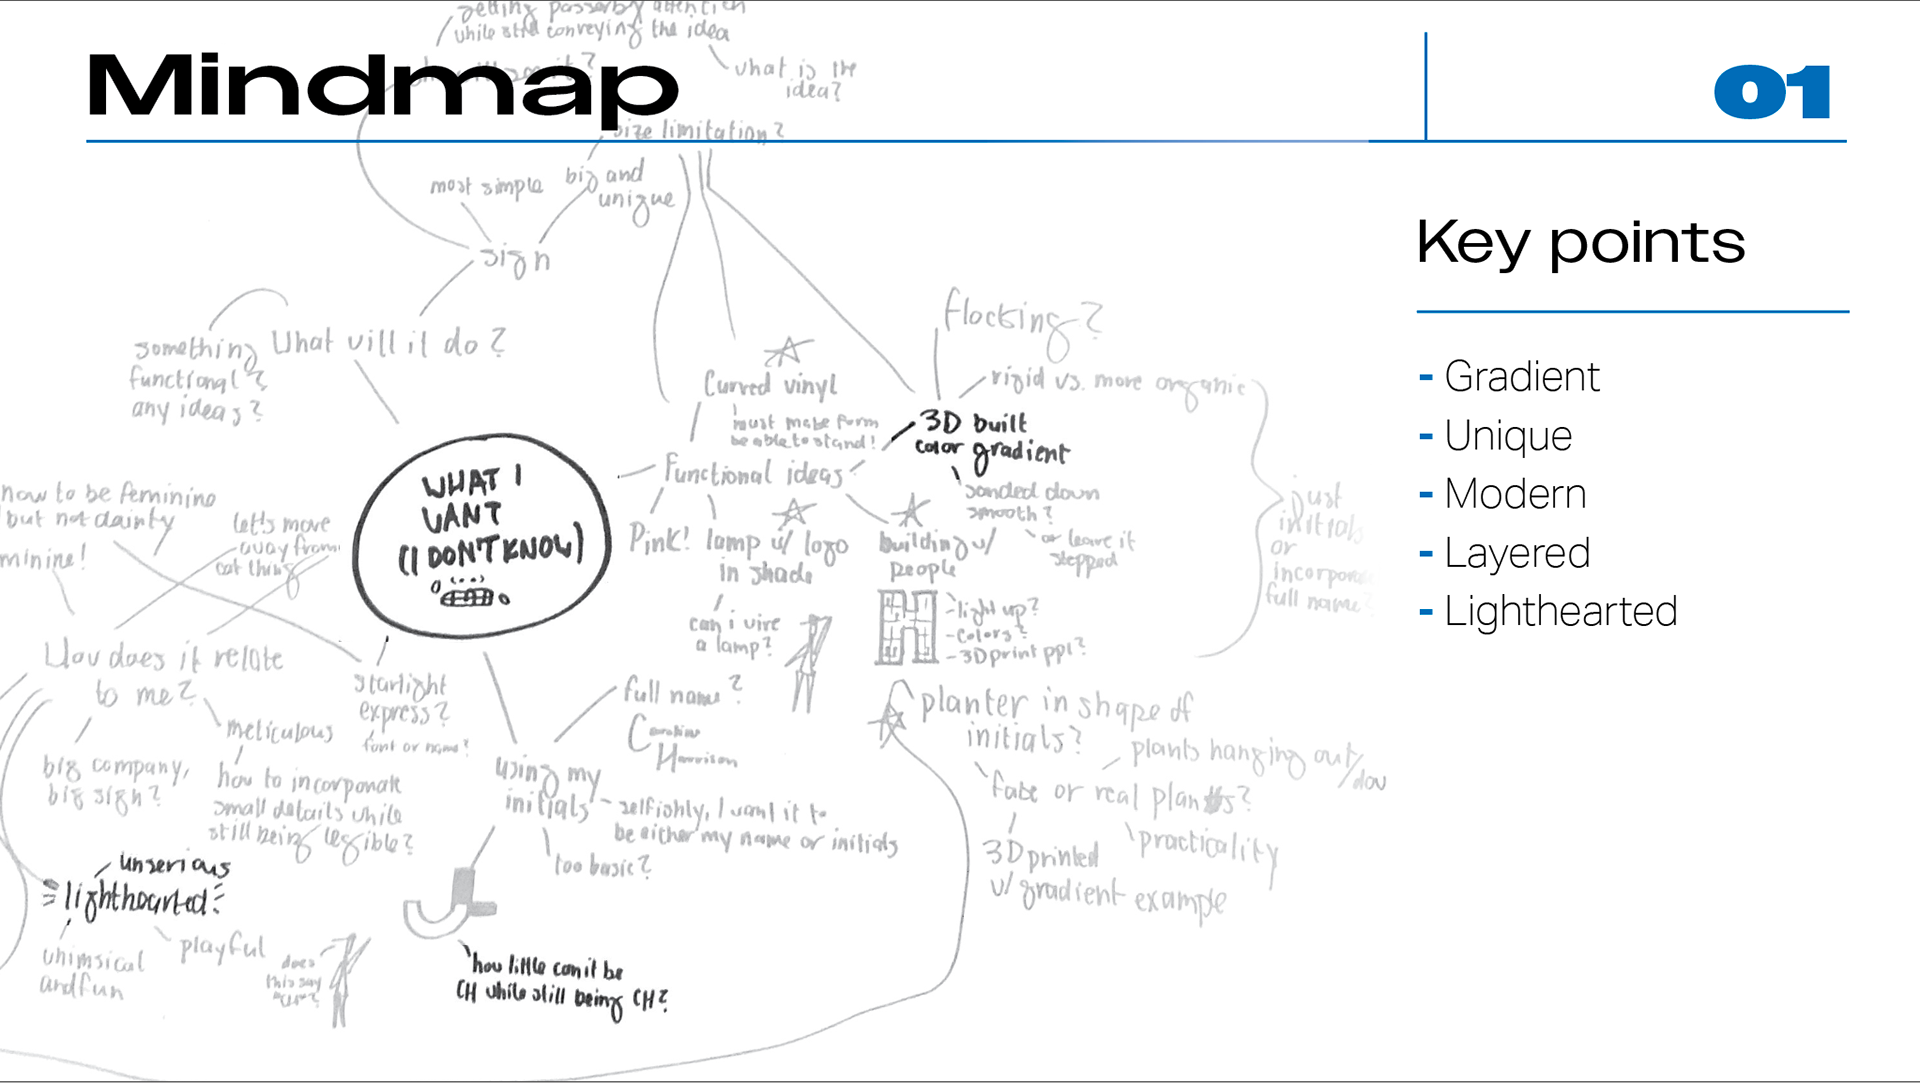 getting passerby attention
while still conveying the idea
what is the
idea?
Mindmap
01
size limitation?
most simple
big and
unique
sign
Key points
- Gradient
- Unique
- Modern
- Layered
- Lighthearted
What will it do?
something
functional?
any ideas?
flocking?
rigid vs. more organic
Curved vinyl
must make form
be able to stand!
3D built
color gradient
Functional ideas
sanded down
smooth?
or leave it
stepped
just
initials
or
incorporate
full name?
WHAT I
WANT
(I DON'T KNOW)
how to be feminine
but not dainty
let's move
away from
cat thing
minine!
Pink!
lamp w/ logo
in shade
can i wire
a lamp?
building w/
people
- light up?
- colors?
- 3D print ppl?
How does it relate
to me?
starlight
express?
font or name?
meticulous
how to incorporate
small details while
still being legible?
big company,
big sign?
full name?
Caroline
Harrison
using my
initials
- selfishly, I want it to
be either my name or initials
too basic?
planter in shape of
initials?
plants hanging out/dow
fake or real plants?
practicality
3D printed
w/ gradient example
unserious
lighthearted
whimsical
and fun
playful
does
this say
"CH"?
how little can it be
CH while still being CH?